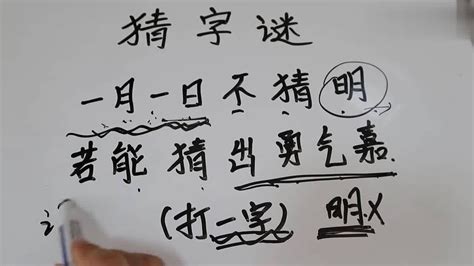 猜字谜
一月一日不猜明
若能猜出勇气嘉
(打一字) 明X